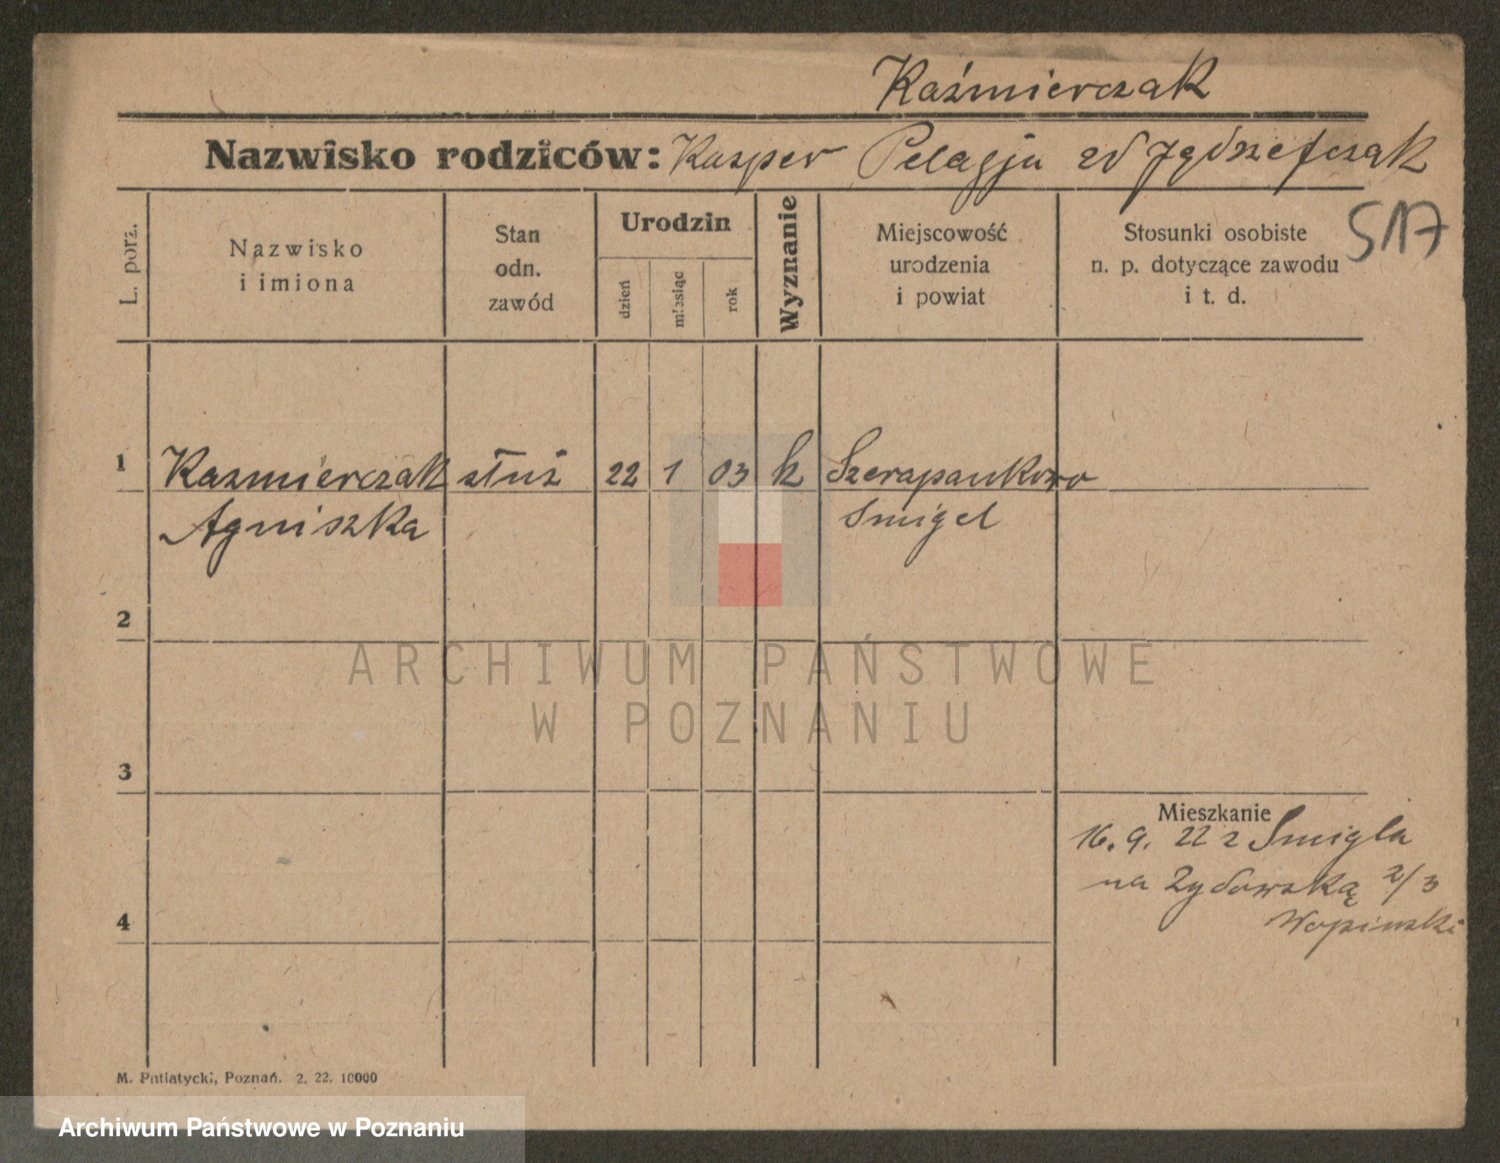 Kaźmierczak
Nazwisko rodziców: Kasper Pelagja zd Jędrzejczak
517
L. porz.
Nazwisko
i imiona
Stan
odn.
zawód
Urodzin
dzień
miesiąc
rok
Wyznanie
Miejscowość
urodzenia
i powiat
Stosunki osobiste
n. p. dotyczące zawodu
i t. d.
1 Kazmierczak służ 22 1 03 k
Agniszka Smigel
2
ARCHIWUM PAŃSTWOWE
W POZNANIU
3
Mieszkanie
16. 9. 22 z Smigla
na Zydowską 2/3
4
M. Putiatycki, Poznań. 2. 22. 10000
Archiwum Państwowe w Poznaniu